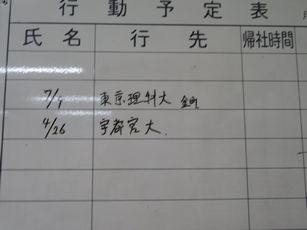 行動予定表
氏名 行先 帰社時間
7/1 東京理科大
4/26 宇都宮大.